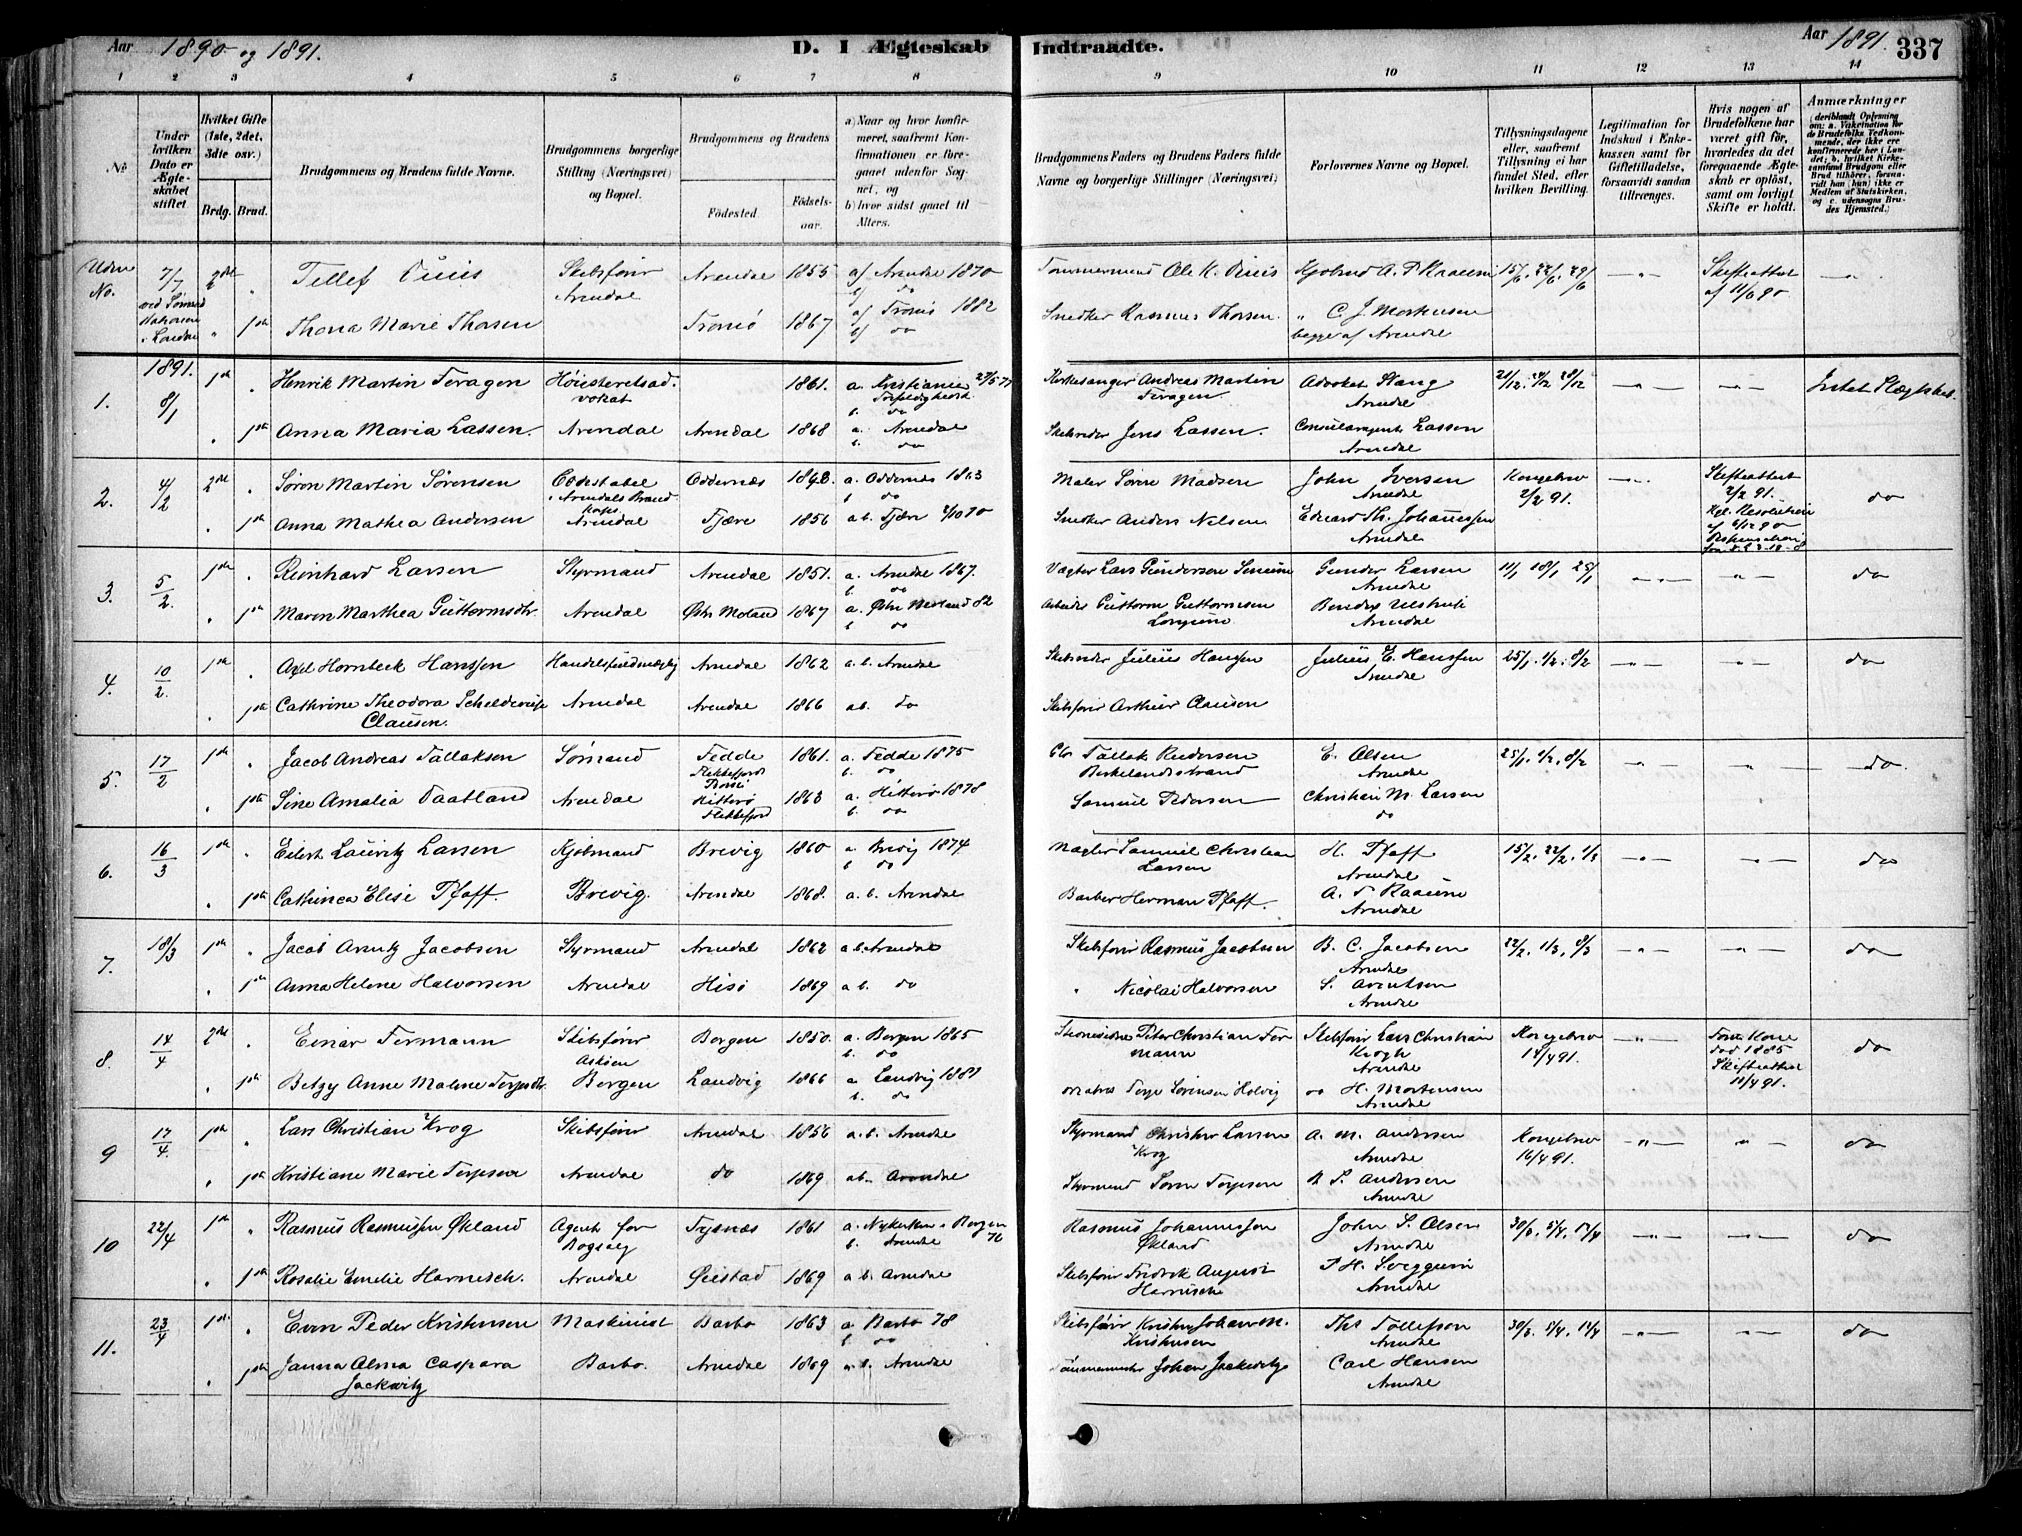 Aar 1890 og 1891.
D. I Ægteskab Indtraadte.
Aar 1891. 337
1 2 3 4 5 6 7 8 9 10 11 12 13 14
No.
Under hvilken Dato er Ægteskabet stiftet.
Hvilket Gifte (1ste, 2det, 3die osv.)
Brdg. Brud.
Brudgommens og Brudens fulde Navne.
Brudgommens borgerlige Stilling (Næringsvei) og Bopæl.
Brudgommens og Brudens
Födested.
Födselsaar.
a) Naar og hvor konfirmeret, saafremt Konfirmationen er foregaaet udenfor Sognet, og
b) hvor sidst gaaet til Alters.
Brudgommens Faders og Brudens Faders fulde Navne og borgerlige Stillinger (Næringsvei)
Forlovernes Navne og Bopæl.
Tillysningsdagene eller, saafremt Tillysning ei har fundet Sted, efter hvilken Bevilling.
Legitimation for Indskud i Enkekassen samt for Giftetilladelse, forsaavidt saadan tiltrænges.
Hvis nogen af Brudefolkene har været gift för, hvorledes da det foregaaende Ægteskab er oplöst, samt om lovligt Skifte er holdt.
Anmærkninger
Uden No. 7/7 2det " Tellef Skibsfører Arendal 1855 a/ Arendal 1870 Tømmermand Ole K. Kjøbmd A. 15/6. 22/6. 29/6 - " - Skifteattest - " -
Arendal b/ do af 11/6 90
" 1ste Thona Marie Thorsen Tromø 1867 a/ Tromø 1882 Snedker Rasmus Thorsen. " C. J. Mortensen
b/ do begge af Arendal
1891.
1. 8/1 1ste " Henrik Martin Feragen Høiesteretsadvokat 1861. a. Kristiania Kirkesanger Andreas Martin Feragen Advokat Stang Arendal 21/12. 28/12 - " - - " - Intet Slægtskab.
b. do
" 1ste Anna Maria Lassen. Arendal Arendal 1868 a. Arendal Skibsreder Jens Lassen. Consularagent Lassen
b. do Arendal
2. 4/2 2det " Søren Martin Sørensen Constabel i Arendals Brandkorps Oddernæs a. Oddernæs 1863 Maler Søren Madsen John Iversen Arendal Kongebrev 2/2 91. - " - Skifteattest 2/2 91. do
b do Kgl. Resolution
" 1ste Anna Mathea Andersen Arendal Fjære 1856 a b. Fjære Snedker Anders Nilsen. Edvard Th. Johannessen Arendal
3. 5/2. 1ste " Reinhard Larsen Styrmand Arendal 1851. a. Arendal 1867. Vægter Lars Gundersen Gunder Larsen Arendal 11/1 18/1 25/1 - " - - " - do
b do
" 1ste Maren Marthea Guttormsdtr. Arendal Østr Moland 1867 a. Østr Moland 82 Arbeider Guttorm Guttormsen Arendal
b do
4. 10/2. 1ste " Axel Hornbeck Hanssen Handelsfuldmægtig Arendal 1862 a.b. Arendal Skibsreder Julius Hanssen Julius E. Hanssen Arendal 25/1. 1/2. 8/2 - " - - " - do
" 1ste Cathrine Theodora Clausen. Arendal Arendal 1866 ab. do Skibsfører Arthur Clausen
5. 17/2 1ste " Jacob Andreas Tallaksen Sømand Fedde Flekkefjord 1861. a. Fedde 1875 Tallak Birkelandsstrand E. Olsen Arendal 25/1. 1/2. 8/2 - " - - " - do.
b. do
" 1ste Sine Amalia Vaatland Arendal Hitterø Flekkefjord 1863 a. Hitterø 1878 Samuel Pedersen Christian M. Larsen
b. do do
6. 16/3 1ste " Eilert Lauritz Larsen Kjøbmand Brevig 1860 a Brevig 1874 Samuel Christian Larsen H. Pfaff Arendal 15/2. 22/2. 1/3 - " - - " - do
b do
" 1ste Cathinca Elise Pfaff. Brevig. Arendal 1868. a. b. Arendal Barber Herman Pfaff. Arendal
7. 18/3 1ste " Jacob Arntz Jacobsen Styrmand Arendal 1862 a b. Arendal Skibsfører Rasmus Jacobsen B. C. Jacobsen Arendal 22/2. 1/3. 8/3 - " - - " - do
" 1ste Anna Helene Halvorsen Arendal Hisø 1869 a b. do " Nicolai Halvorsen S. Arentsen
Arendal
8. 14/4 2det " Einar Fermann Skibsfører Bergen 1850. a. Bergen 1865 Peter Christian Fermann Skibsfører Lars Christian Krogh Arendal Kongebrev 14/4 91. - " - Kone død 1885 Skifteattest 11/4 91. do
b. do
" 1ste Betzy Anne Malene Bergen Landvig 1866 a Landvig 1881 Matros Terje Sørensen Holvig do H. Mortensen
b. do Arendal
9 17/4. 1ste " Lars Christian Krog Skibsfører Arendal 1856 a.b. Arendal Styrmand Christen Larsen Krog A. M. Andersen Arendal Kongebrev 16/4 91. - " - - " - do
" 1ste Kristiane Marie Terpsen Arendal do 1869 ab. Arendal Styrmand Søren Terpsen S. Andersen
Arendal
10 22/4 1ste " Rasmus Rasmussen Økland Agent for Bogsalg Tysnæs 1861 a. Nykirken i Bergen 76 Rasmus Johannessen Økland John S. Olsen Arendal 30/3. 5/4. 12/4 - " - - " - do
b. Arendal
" 1ste Rosalie Emelie Harnisch. Arendal Øiestad 1869 a b. Arendal Skibsfører Fredrik August Harnisch
Arendal
11. 23/4 1ste " Even Peder Kristensen Maskinist Barbo 1863 a Barbo 78 Skibsfører Johan M. Kristensen Ths Tollefsen Arendal 30/3. 5/4. 12/4 - " - - " - do
b do
" 1ste Janna Alma Caspara Jackwitz Barbo. Arendal 1869 a. b. Arendal Johan Jackwitz Carl Hansen
Arendal